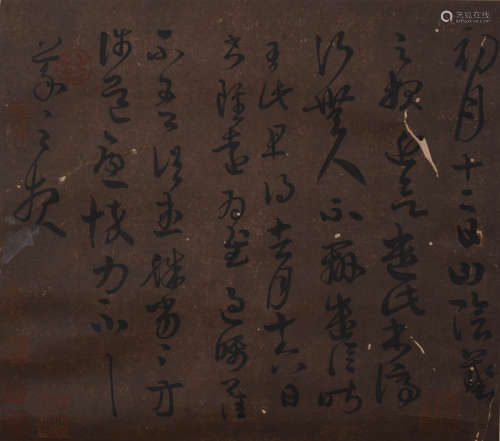 初月十二日山陰羲
之報近欲遣此書停
行無人不辦遣信昨
至此且得去月十六日
書雖遠爲慰過囑卿佳
不吾諸患殊劣〻方
涉道憂悴力不具
羲之報